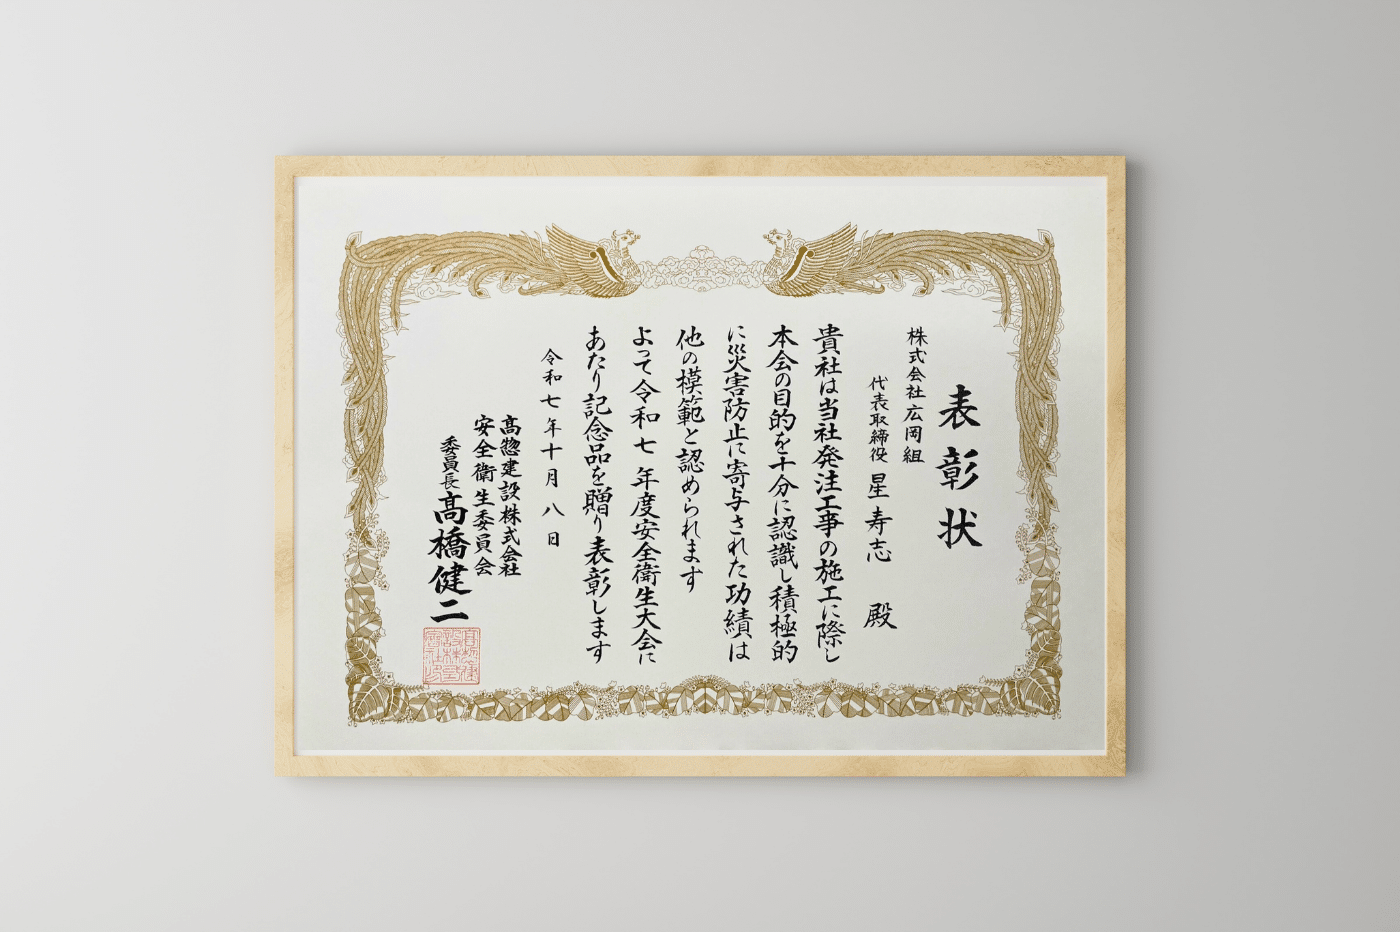 表彰状
株式会社 広岡組
代表取締役 星寿志 殿
貴社は当社発注工事の施工に際し
本会の目的を十分に認識し積極的
に災害防止に寄与された功績は
他の模範と認められます
よって令和七年度安全衛生大会に
あたり記念品を贈り表彰します
令和七年十月八日
髙惣建設株式会社
安全衛生委員会
委員長 髙橋健二